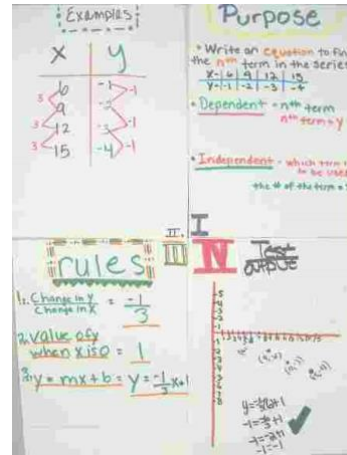 Examples
X Y
6 -1
9 -2
12 -3
15 -4
3 3 3
-1 -1 -1
Purpose
• Write an equation to fin
the nth term in the series
X- 6 9 12 15
Y- -1 -2 -3 -4
• Dependent - nth term
nth term = y
• Independent - which term
to be used
the # of the term =
II I
III IV
rules
1. Change in y / Change in x = -1/3
2. Value of y
when x is 0 = 1
3. y = mx + b = y = -1/3x+1
Test
y=-1/3x+1
-1=-6/3+1
-1=-2+1
-1=-1